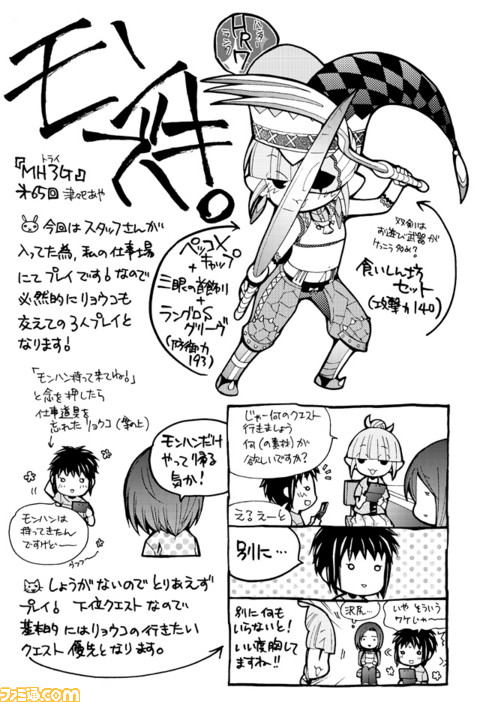 モンハン部。
ハンターランク
HR7
『MH3G』
トライ
第65回
今回はスタッフさんが
入ってた為、私の仕事場
にてプレイです!なので
必然的にリョウコも
交えての3人プレイと
なります!
ペッコX
キャップ
+
三眼の首飾り
+
ラングロS
グリーヴ
(防御力
193)
双剣は
お遊び武器が
けっこう多め?
食いしん坊
セット
(攻撃力140)
「モンハン持って来てね!」
と念を押したら
仕事道具を
忘れたリョウコ(弟の上)
モンハンは
持ってきたん
ですけどー
うフフー
モンハンだけ
やって帰る
気か!
しょうがないのでとりあえず
プレイ!下位クエストなので
基本的にはリョウコの行きたい
クエスト優先となります。
じゃー何のクエスト
行きましょう
何(の素材)が
欲しいですか?
え?えーと
別に…
別に何も
いらないと!
いい度胸して
ますねー!!
沢尻…
いやそういう
ワケじゃー
ファミ通.com